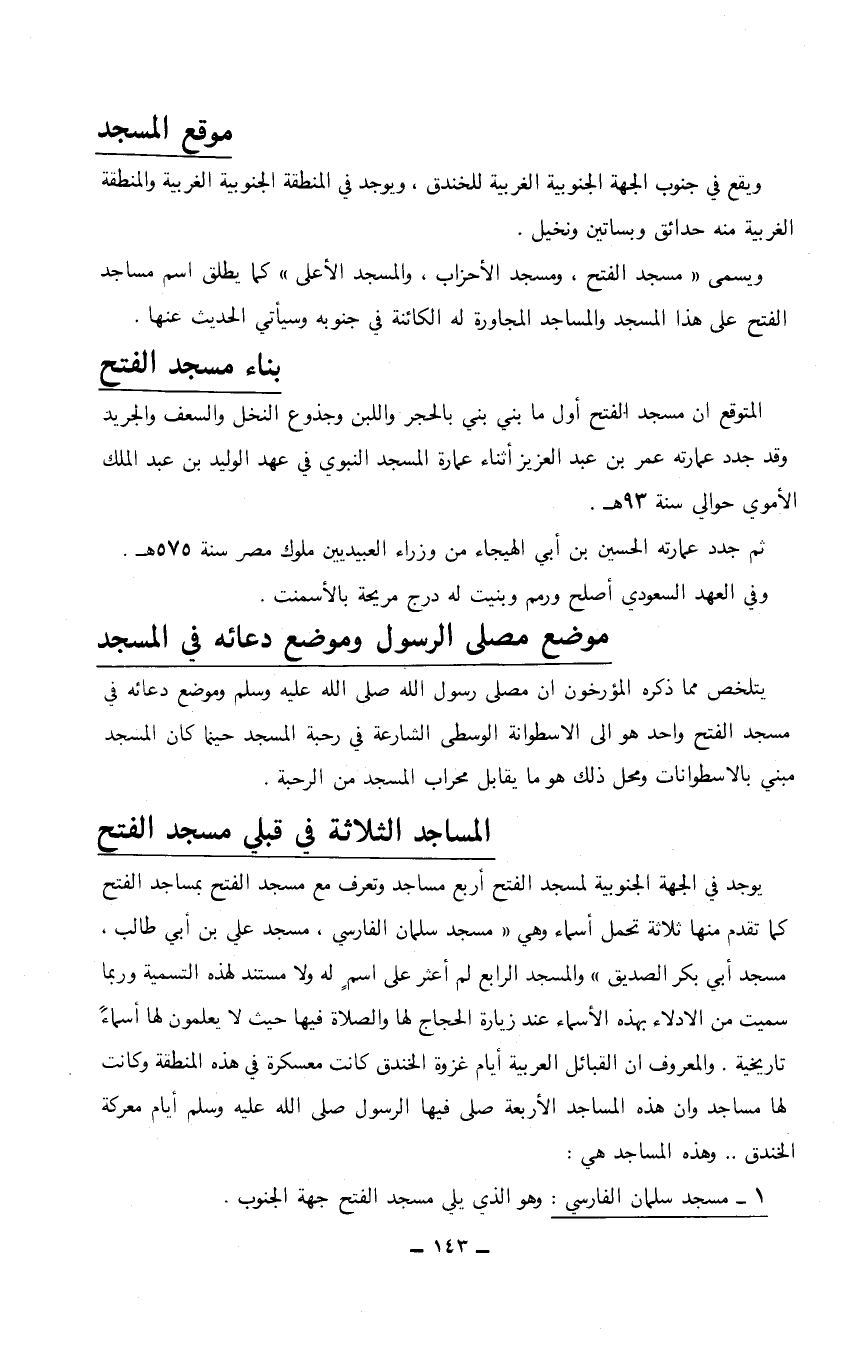 موقع المسجد
ويقع في جنوب الجهة الجنوبية الغربية للخندق ، ويوجد في المنطقة الجنوبية الغربية والمنطقة
الغربية منه حدائق وبساتين ونخيل .
ويسمى « مسجد الفتح ، ومسجد الأحزاب ، والمسجد الأعلى » كما يطلق اسم مساجد
الفتح على هذا المسجد والمساجد المجاورة له الكائنة في جنوبه وسيأتي الحديث عنها .
بناء مسجد الفتح
المتوقع ان مسجد الفتح أول ما بني بني بالحجر واللبن وجذوع النخل والسعف والجريد
وقد جدد عمارته عمر بن عبد العزيز أثناء عمارة المسجد النبوي في عهد الوليد بن عبد الملك
الأموي حوالي سنة ٩٣هـ .
ثم جدد عمارته الحسين بن أبي الهيجاء من وزراء العبيديين ملوك مصر سنة ٥٧٥هـ .
وفي العهد السعودي أصلح ورمم وبنيت له درج مريحة بالأسمنت .
موضع مصلى الرسول وموضع دعائه في المسجد
يتلخص مما ذكره المؤرخون ان مصلى رسول الله صلى الله عليه وسلم وموضع دعائه في
مسجد الفتح واحد هو الى الاسطوانة الوسطى الشارعة في رحبة المسجد حينما كان المسجد
مبني بالاسطوانات ومحل ذلك هو ما يقابل محراب المسجد من الرحبة .
المساجد الثلاثة في قبلي مسجد الفتح
يوجد في الجهة الجنوبية لمسجد الفتح أربع مساجد وتعرف مع مسجد الفتح بمساجد الفتح
كما تقدم منها ثلاثة تحمل أسماء وهي « مسجد سلمان الفارسي ، مسجد علي بن أبي طالب ،
مسجد أبي بكر الصديق » والمسجد الرابع لم أعثر على اسمٍ له ولا مستند لهذه التسمية وربما
سميت من الادلاء بهذه الأسماء عند زيارة الحجاج لها والصلاة فيها حيث لا يعلمون لها أسماءً
تاريخية . والمعروف ان القبائل العربية أيام غزوة الخندق كانت معسكرة في هذه المنطقة وكانت
لها مساجد وان هذه المساجد الأربعة صلى فيها الرسول صلى الله عليه وسلم أيام معركة
الخندق .. وهذه المساجد هي :
١ ـ مسجد سلمان الفارسي : وهو الذي يلي مسجد الفتح جهة الجنوب .
ـ ١٤٣ ـ